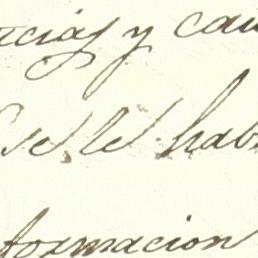 ncias y cau
se le hab
formacion